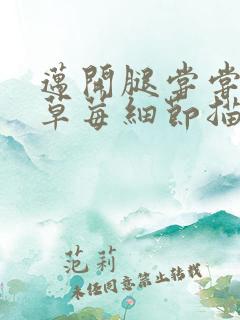 遵開腿嘗嘗
草莓細節描
范莉
未经同意禁止转载